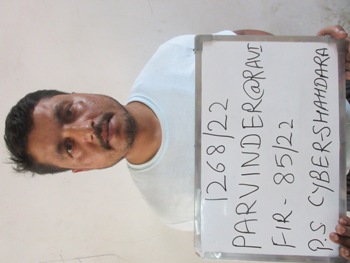 1268/22
PARVINDER@RAVI
FIR - 85/22
P.S CYBER-SHAHDARA